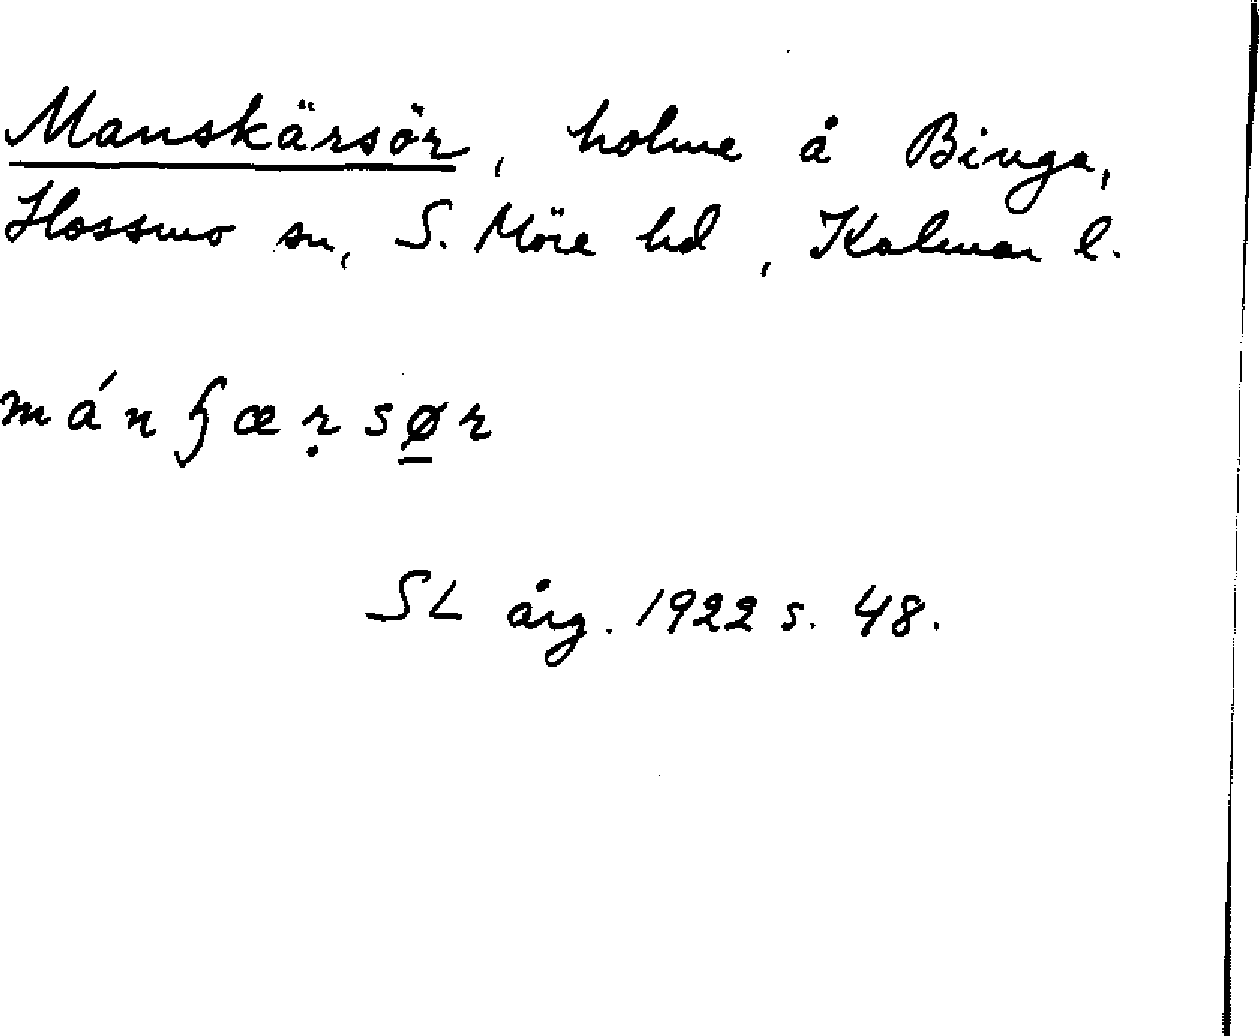 Manskärsör, holme å Binga,
Hossmo sn, S. Möre hd, Kalmar l.
mánꞎæṛsø̲r
SL årg. 1922 s. 48.